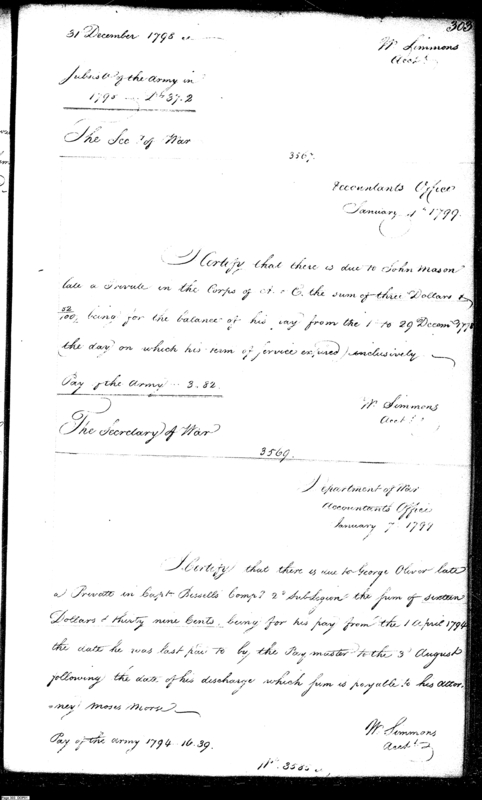 303
31 December 1798
Wm Simmons
Acctt
Subsce of the Army in
1798 Drs 37.2
The Secy of War
3567.
Accountants Office
January 4th 1799.
I Certify that there is due to John Mason
late a Private in the Corps of A. & E. the sum of three Dollars &
82/100 being for the balance of his pay from the 1 to 29 Decemr 1798
the day on which his term of Service expired inclusively.
Pay of the Army 3.82
Wm Simmons
Acctt
The Secretary of War
3569.
Department of War
Accountants Office
January 7 1799
I Certify that there is due to George Oliver late
a Private in Captn Compy 2d Sub Legion the sum of sixteen
Dollars & thirty nine Cents being for his pay from the 1 April 1794
the date he was last paid to by the Pay master to the 3d August
following the date of his discharge which sum is payable to his attor
-ney Moses Morse
Wm Simmons
Acctt
Pay of the Army 1794 16.39.